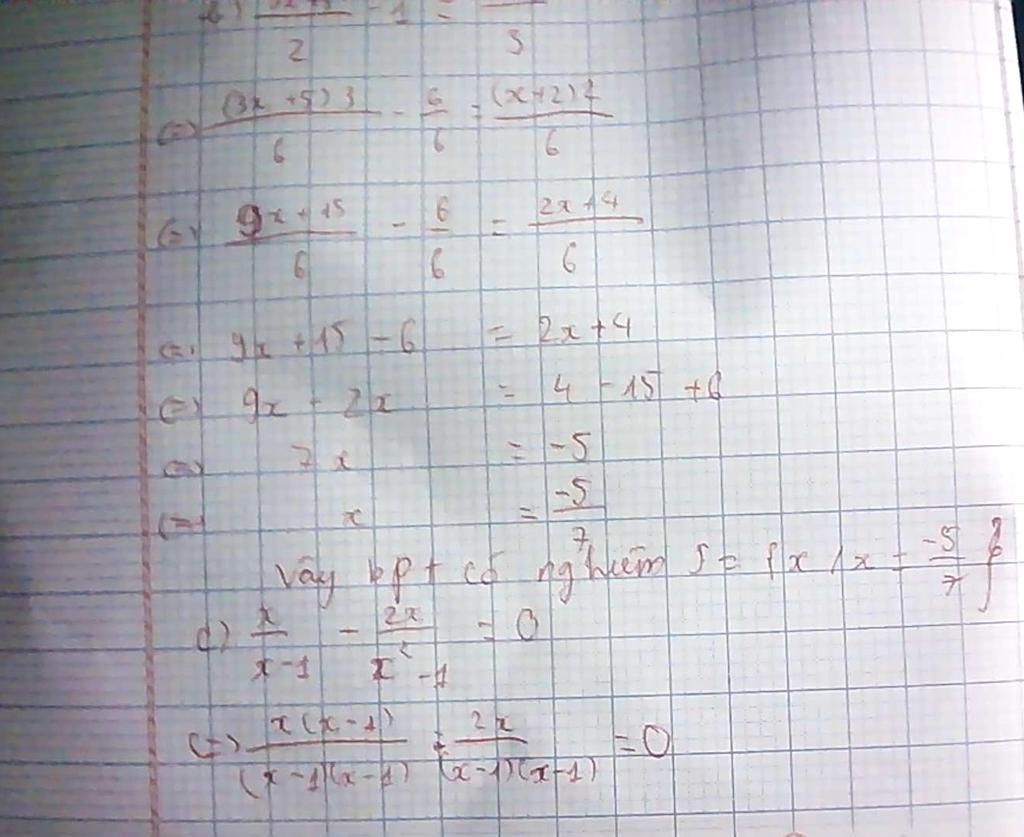 2 - 1 = 3
(=) (3x+5)3/6 - 6/6 = (x+2)2/6
(=) 9x+15/6 - 6/6 = 2x+4/6
(=) 9x+15-6 = 2x+4
(=) 9x-2x = 4-15+6
(=) 7x = -5
(=) x = -5/7
Vậy bpt có nghiệm S = {x / x = -5/7}
c) x/x-1 - 2x/x²-1 = 0
(=) x(x-1)/(x-1)(x-1) - 2x/(x-1)(x-1) = 0